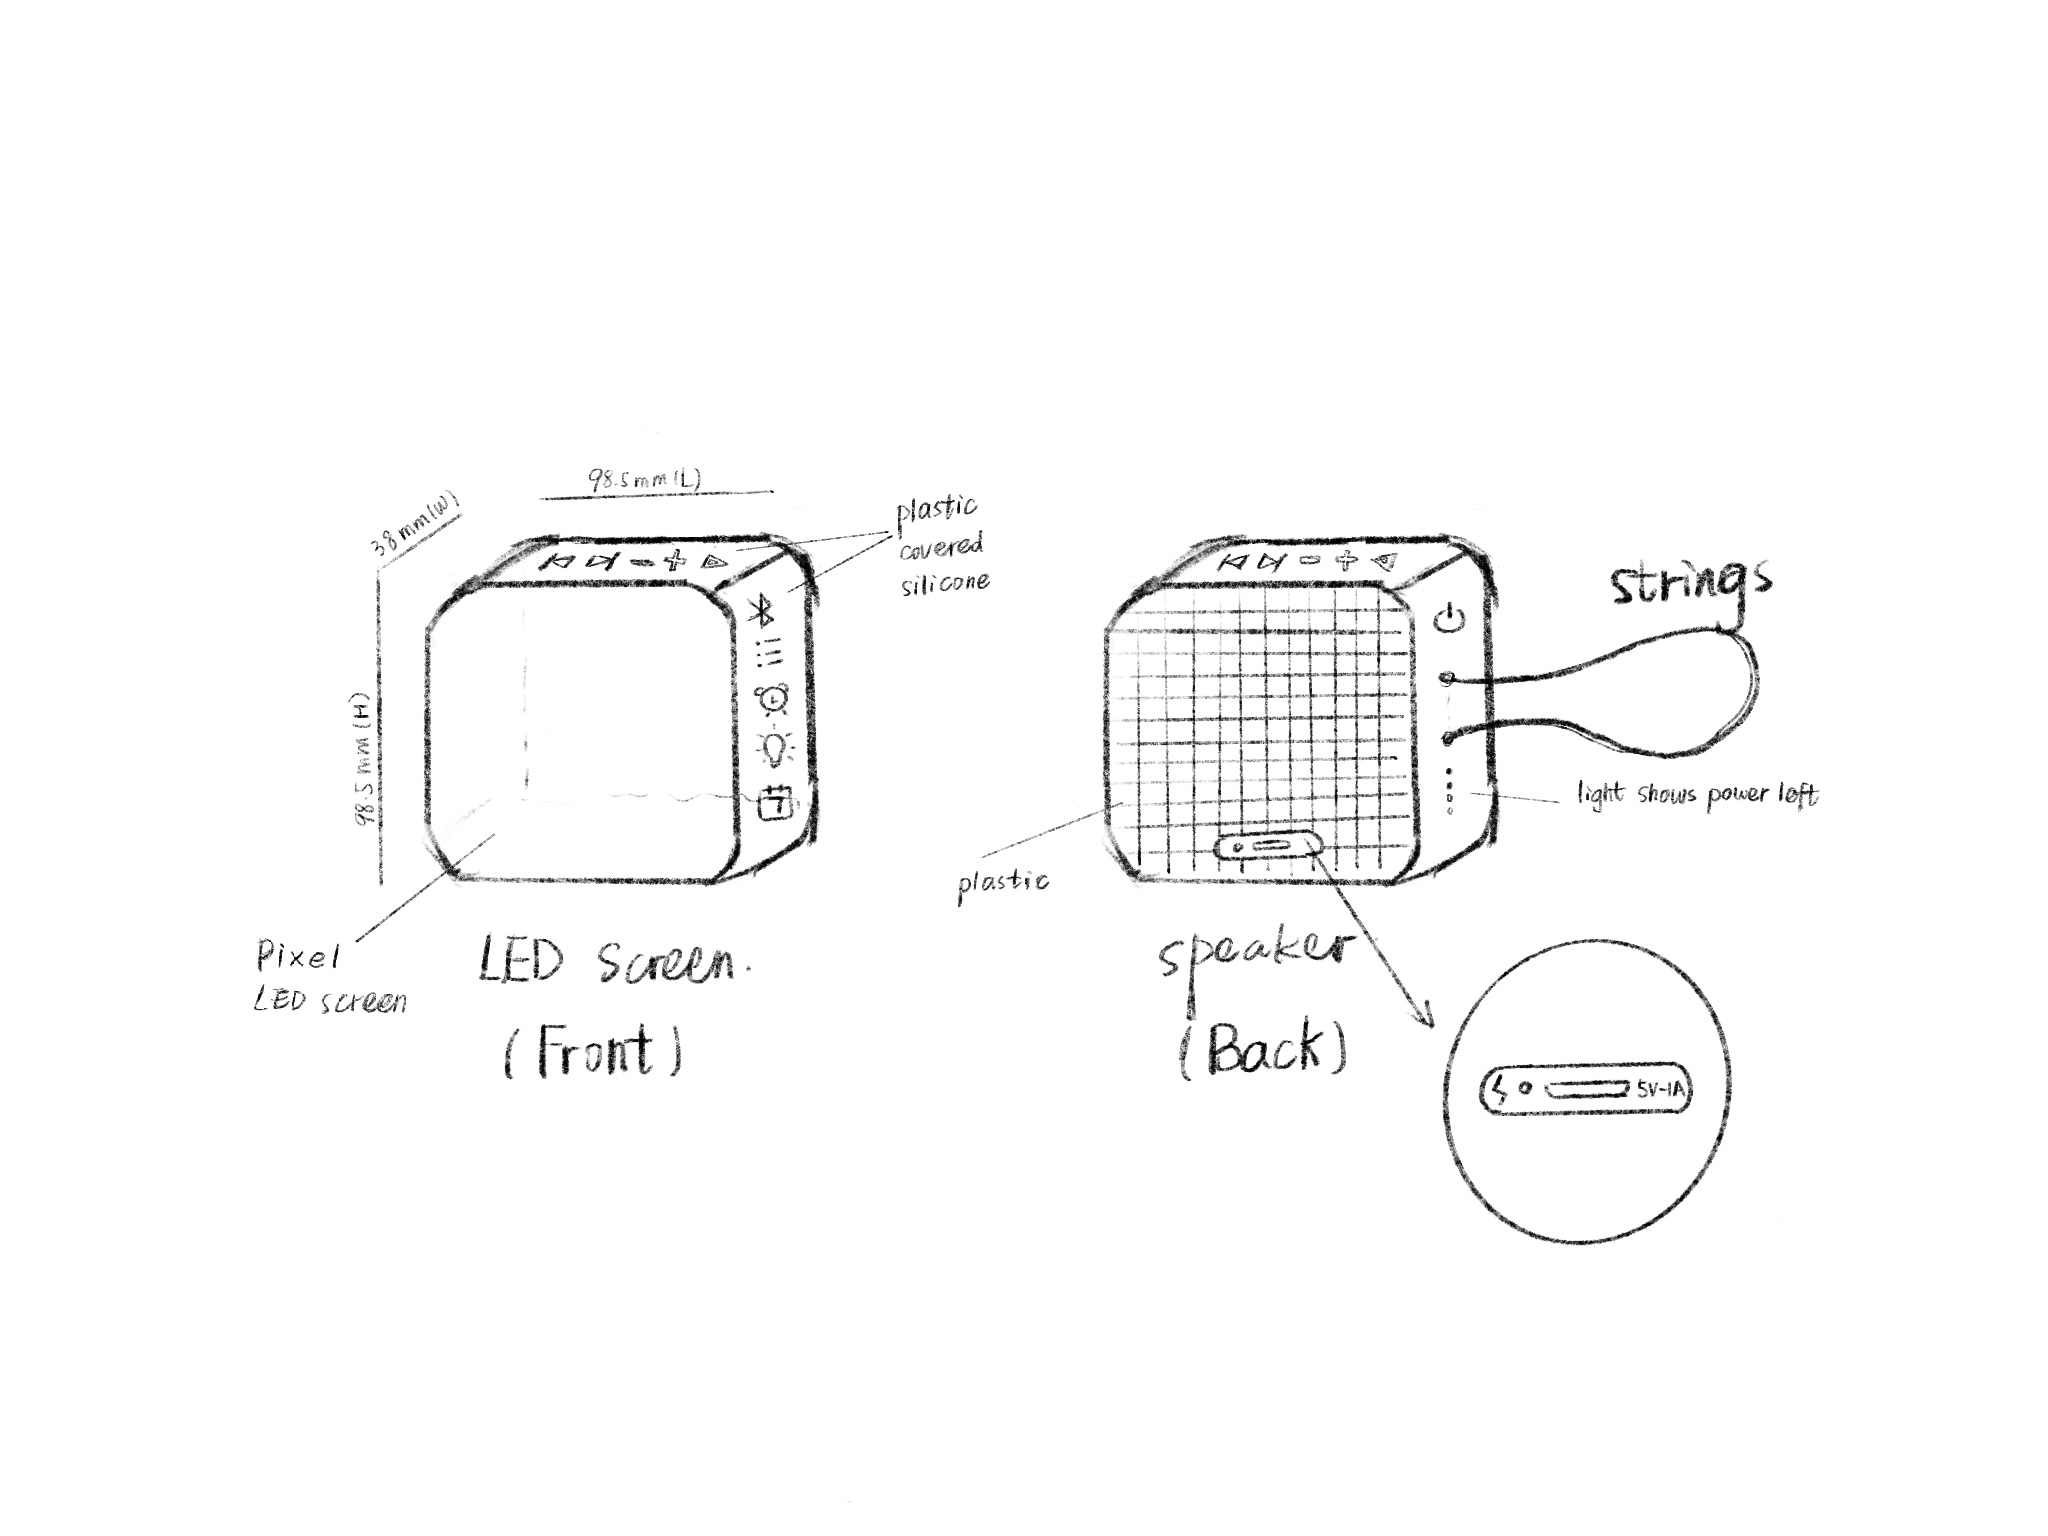 98.5mm(L)
38mm(W)
98.5mm(H)
plastic
covered
silicone
Pixel
LED screen
LED Screen.
(Front)
strings
light shows power left
plastic
speaker
(Back)
5V-1A